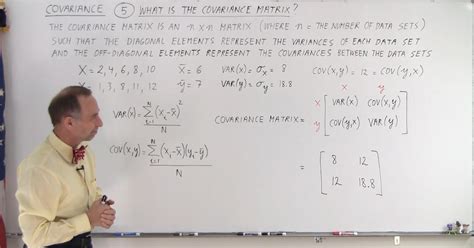 COVARIANCE (5) WHAT IS THE COVARIANCE MATRIX?
THE COVARIANCE MATRIX IS AN n x n MATRIX (WHERE n = THE NUMBER OF DATA SETS)
SUCH THAT THE DIAGONAL ELEMENTS REPRESENT THE VARIANCES OF EACH DATA SET
AND THE OFF-DIAGONAL ELEMENTS REPRESENT THE COVARIANCES BETWEEN THE DATA SETS
X = 2, 4, 6, 8, 10 x̄ = 6 VAR(x) = σx = 8 COV(x,y) = 12 = COV(y,x)
1, 3, 8, 11, 12 ȳ = 7 VAR(y) = σy = 18.8
x y
VAR(x) = Σ(xi - x̄)² / N
N i=1
COVARIANCE MATRIX =
x [ VAR(x) COV(x,y) ]
y [ COV(y,x) VAR(y) ]
COV(x,y) = Σ(xi - x̄)(yi - ȳ) / N
N i=1
= [ 8 12 ]
[ 12 18.8 ]